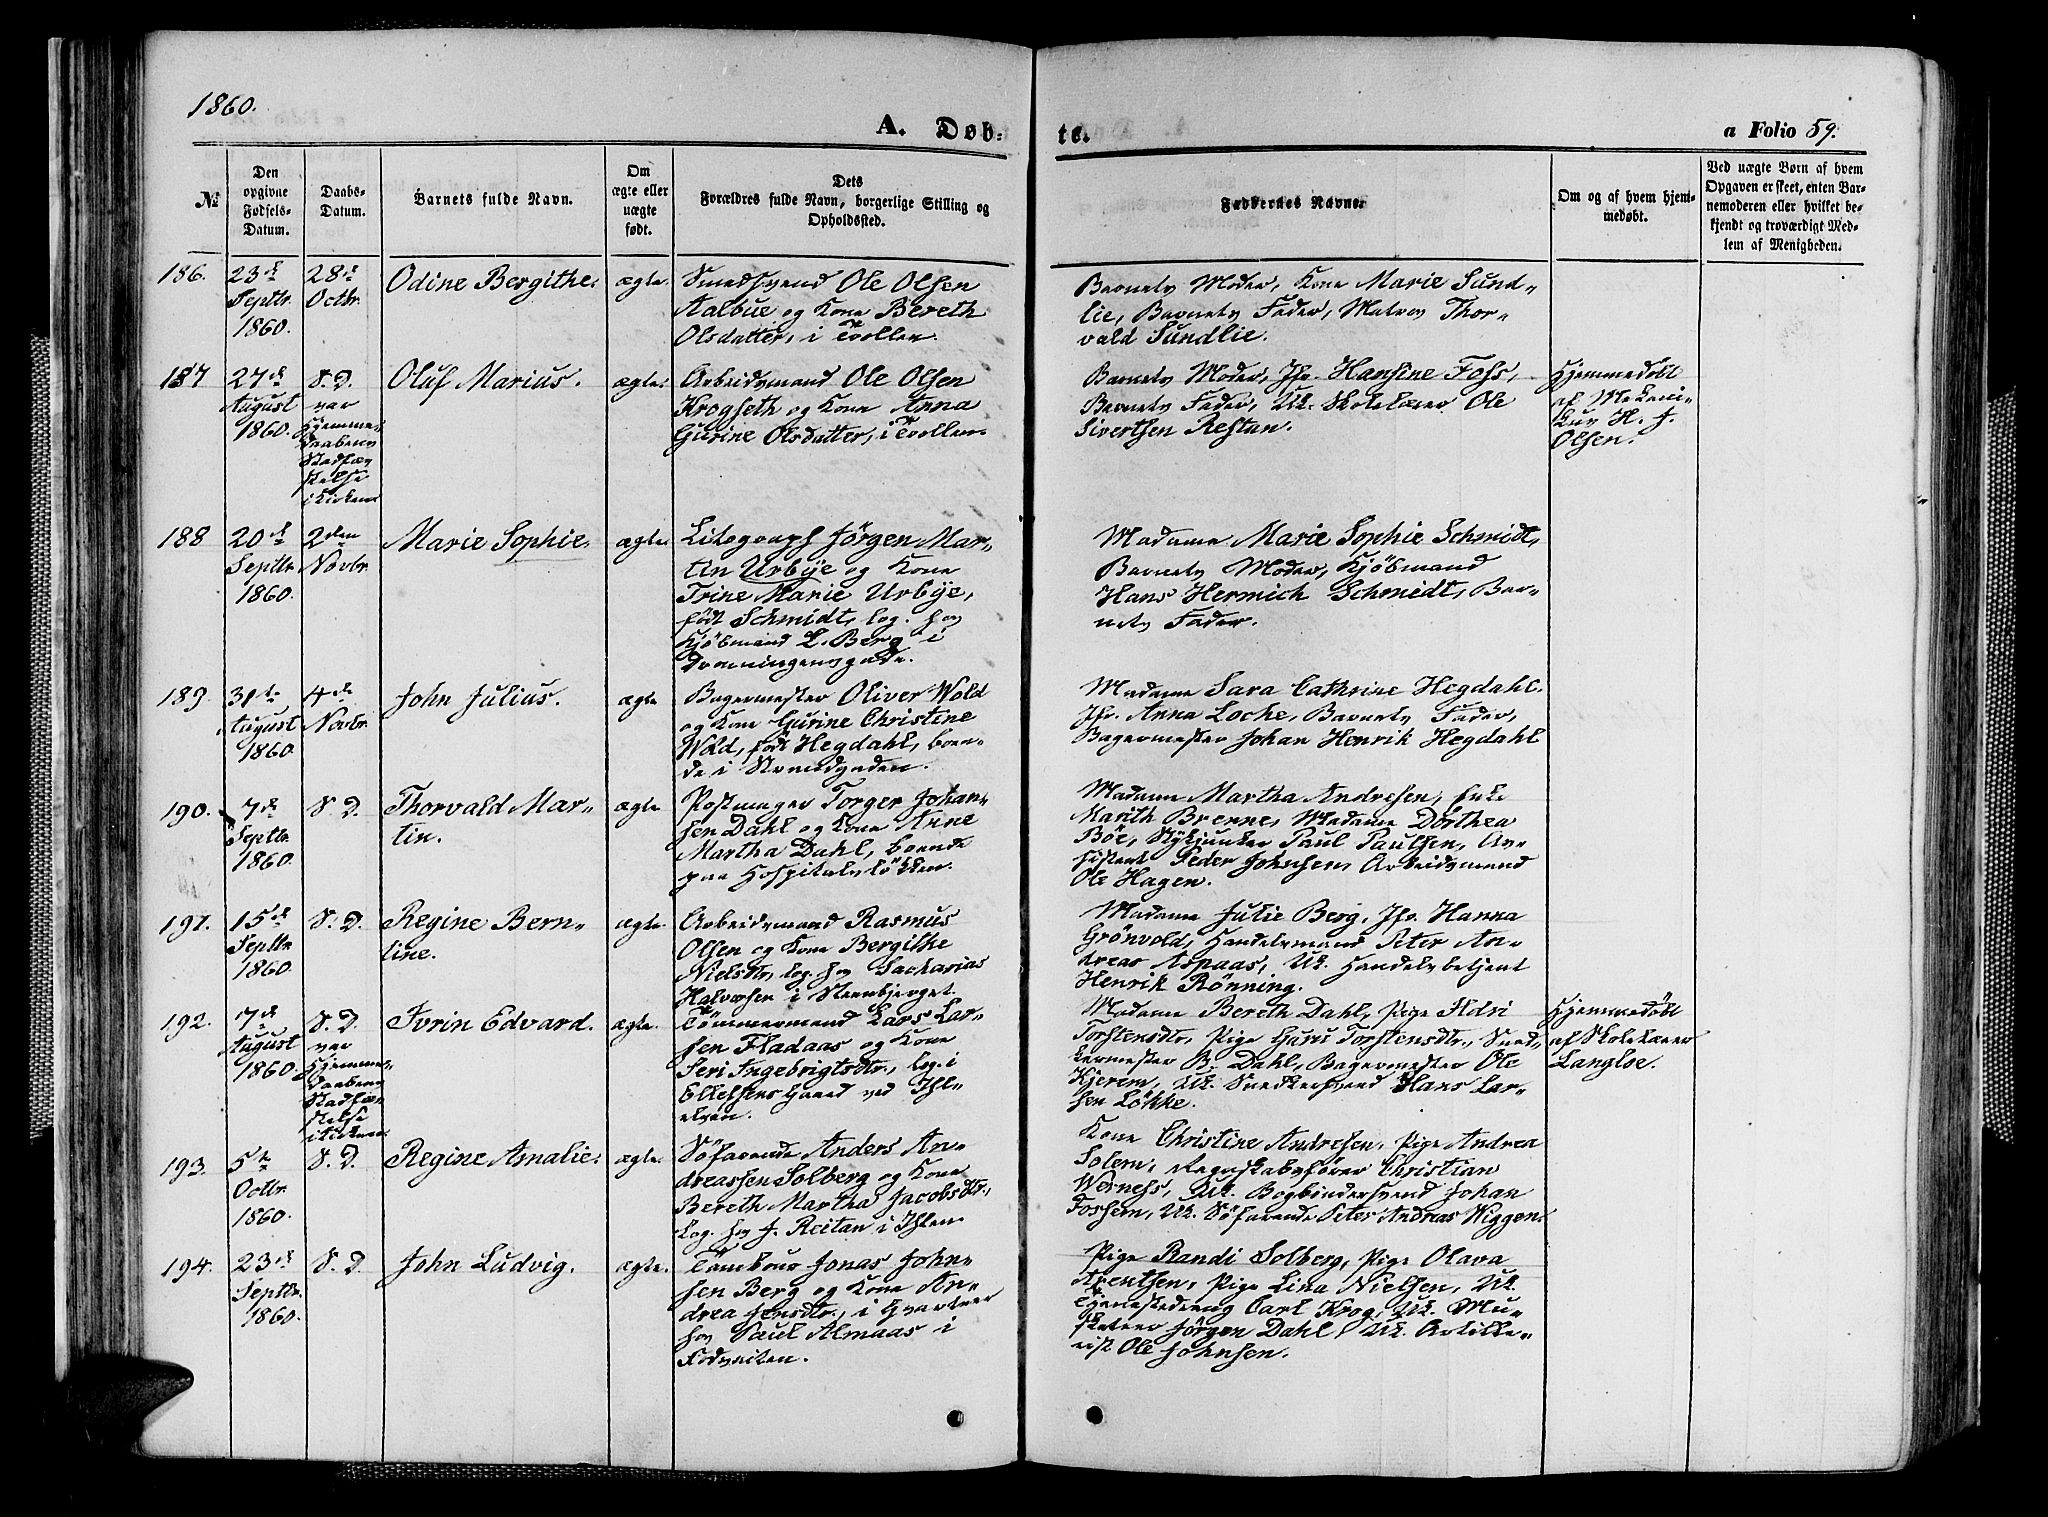 1860.
A. Døb-
te.
a Folio 59.
№
Den opgivne Fødsels-Datum.
Daabs-Datum.
Barnets fulde Navn.
Om ægte eller uægte født.
Dets
Forældres fulde Navn, borgerlige Stilling og
Opholdssted.
Faddernes Navne.
Om og af hvem hjem-
medøbt.
Ved uægte Børn af hvem
Opgaven er skeet, enten Bar-
nemoderen eller hvilket be-
kjendt og troværdigt Med-
lem af Menigheden.
186. 23d Septbr. 1860. 28d Octbr. Odine Bergithe. ægte.
Smedsvend Ole Olsen
Aalbue og Kone Bereth
Olsdatter, i Trollen.
Barnets Moder, Kone Marie Sund-
lie, Barnets Fader, Matros Thor-
vald Sundlie.
187 27d August 1860. S. D. var Hjemme-daabens Stadfæstelse i Kirken. Oluf Marius. ægte.
Arbeidsmand Ole Olsen
Krogseth og Kone Anna
Gurine Olsdatter, i Trollen.
Barnets Moder, Jfr. Hansine Foss,
Barnets Fader, Uk. Skolelærer Ole
Sivertsen Restan.
Hjemmedøbt
af Mekani-
kus H. J.
Olsen.
188 20d Septbr. 1860. 2den Novbr. Marie Sophie. ægte.
Litograph Jörgen Mar-
tin Urbye og Kone
Trine Marie Urbye,
født Schmidt, log. hos
Kjöbmand L. Berg i
Dronningensgade.
Madame Marie Sophie Schmidt,
Barnets Moder, Kjöbmand
Hans Hermich Schmidt, Bar-
nets Fader.
189. 31te August 1860. 4de Novbr. John Julius. ægte
Bagermester Oliver Wold
og Kone Gurine Christine
Wold, født Hegdahl, boen-
de i Strandgaden.
Madame Sara Cathrine Hegdahl.
Jfr. Anna Loche, Barnets Fader,
Bagermester Johan Henrik Hegdahl
190. 7de Septbr. 1860. S. D. Thorvald Mar-
tin. ægte
Postmager Torger Johan-
sen Dahl og Kone Anne
Martha Dahl, boende
paa Hospitalslökken.
Madame Martha Andresen, Enke
Marith Brenne, Madame Dorthea
Böe, Stykjunker Paul Paulsen, As-
sistent Peder Johnsen, Arbeidsmand
Ole Hagen.
191. 15d Septbr. 1860. S. D. Regine Bern-
tine. ægte.
Arbeidsmand Rasmus
Olsen og Kone Bergithe
Nielsdtr., log. hos Sacharias
Halvorsen i Steenbjerget.
Madame Julie Berg, Jfr. Hanna
Grönvold, Handelsmand Peter An-
dreas Aspaas, Uk. Handelsbetjent
Henrik Rönning.
192. 7de August 1860. S. D. var Hjemme-daabens Stadfæstelse i Kirken. Ivrin Edvard. ægte.
Tömmermand Lars Lar-
sen Fladaas og Kone
Seri Ingebrigtsdtr., log. i
Ellefsens Gaard ved Ihl-
elven.
Madame Bereth Dahl, Pige Ildri
Torstensdtr., Pige Guru Torstensdtr., Sned-
kermester B. Dahl, Bagermester Ole
Kjerem, Uk. Snedkersvend Hans Lar-
sen Lökke.
Hjemmedøbt
af Skolelærer
Langloe.
193. 5te Octbr. 1860. S. D. Regine Amalie. ægte.
Söfarende Anders An-
dreassen Solberg og Kone
Bereth Martha Jacobsdtr.,
log. hos J. Reitan i Ihlen.
Kone Christine Andresen, Pige Andrea
Solem, Regnskabsfører Christian
Werness, Uk. Bogbindersvend Johan
Fossem, Uk. Söfarende Peter Andreas Wiggen.
194. 23d Septbr. 1860. S. D. John Ludvig. ægte.
Tambour Jonas John-
sen Berg og Kone An-
drea Jensdtr., i Qvarteer
hos Paul Almaas i
Pige Randi Solberg, Pige Olava
Arentsen, Pige Lina Nielsen, Uk.
Tjenestedreng Carl Krog, Uk. Mu-
sketeer Jörgen Dahl, Uk. Artille-
rist Ole Johnsen.